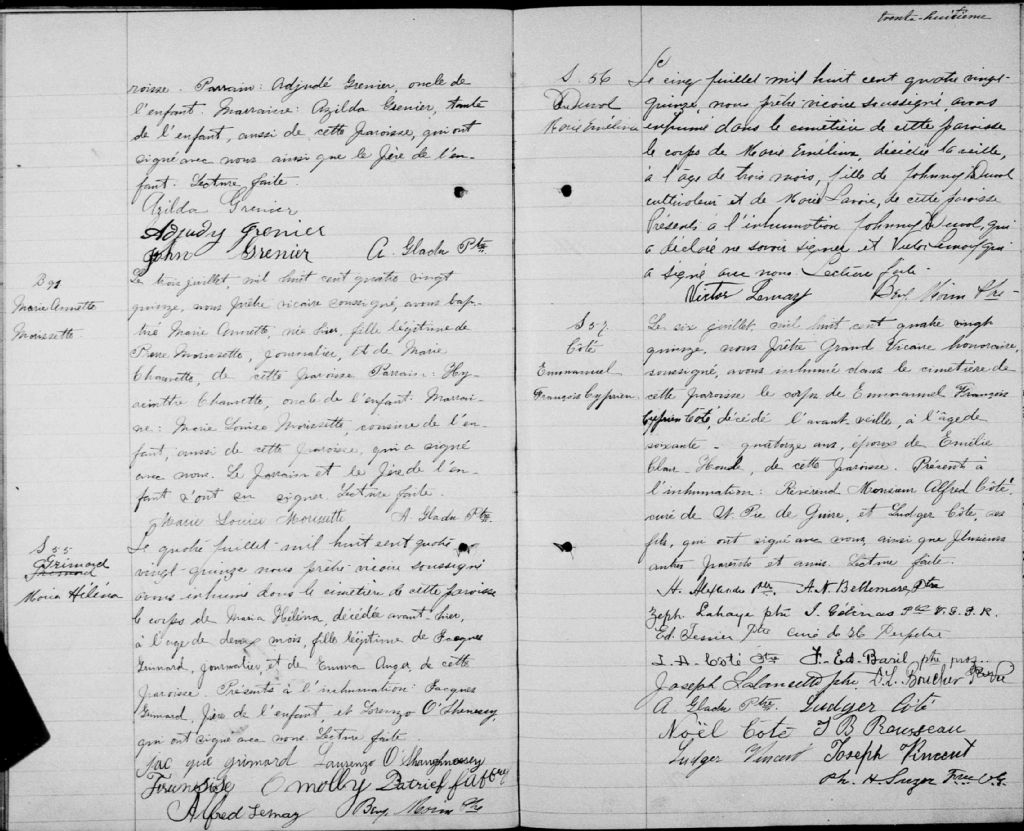 roisse. Parrain: Adjudé Grenier, oncle de
l'enfant. Marraine: Azilda Grenier, tante
de l'enfant, aussi de cette paroisse, qui ont
signé avec nous ainsi que le père de l'en-
fant. Lecture faite.
Azilda Grenier
Adjudy Grenier
John Grenier A. Gladu Ptre
B 91
Marie Annette
Morissette
Le trois juillet, mil huit cent quatre vingt
quinze, nous prêtre vicaire soussigné, avons bap-
tisé Marie Annette, née hier, fille légitime de
Pierre Morissette, journalier, et de Marie
Chaurette, de cette paroisse. Parrain: Hy-
acinthe Chaurette, oncle de l'enfant. Marrai-
ne: Marie Louise Morissette, cousine de l'en-
fant, aussi de cette paroisse, qui a signé
avec nous. Le parrain et le père de l'en-
fant n'ont su signer. Lecture faite.
Marie Louise Morissette A. Gladu Ptre
S 55
Grimard
Maria Héléna
Le quatre juillet mil huit cent quatre
vingt-quinze nous prêtre vicaire soussigné
avons inhumé dans le cimetière de cette paroisse
le corps de Maria Héléna, décédée avant-hier,
à l'age de deux mois, fille légitime de Jacques
Grimard, journalier, et de Emma Auger, de cette
paroisse. Présents à l'inhumation: Jacques
Grimard, père de l'enfant, et Lorenzo O'Shenessy,
qui ont signé avec nous. Lecture faite.
Jac que grimard Laurenzo O'Shaughnessey
Omolly Patrick
Alfred Lemay Benj. Morin Ptre
trente-huitième
S. 56
Duval
Marie Emélina
Le cinq juillet mil huit cent quatre vingt-
quinze, nous prêtre vicaire soussigné, avons
inhumé dans le cimetière de cette paroisse
le corps de Marie Emélina, décédée la veille,
à l'âge de trois mois, fille de Johnny Duval
cultivateur et de Marie Lavoie, de cette paroisse
Présents à l'inhumation Johnny Duval, qui
a déclaré ne savoir signer et Victor Lemay qui
a signé avec nous Lecture faite.
Victor Lemay Benj. Morin Ptre
S 57
Côté
Emmanuel
François Cyprien
Le six juillet, mil huit cent quatre vingt
quinze, nous prêtre Grand Vicaire honoraire,
soussigné, avons inhumé dans le cimetière de
cette paroisse le corps de Emmanuel François
Cyprien Côté, décédé l'avant-veille, à l'âge de
soixante-quatorze ans, époux de Emélie
Clair Houde, de cette paroisse. Présents à
l'inhumation: Révérend Monsieur Alfred Côté,
curé de St. Pie de Guire, et Ludger Côté, ses
fils, qui ont signé avec nous, ainsi que plusieurs
autres parents et amis. Lecture faite.
H. Alexandre ptre A. N. Bellemare, Ptre
Zeph. Lahaye ptre I. Gélinas Ptre
Ed. Tessier, Ptre curé de Ste Perpétue
J. A. Coté Ptre F. Ed. Baril ptre proc.
Joseph Ptre D. L. Boucher Ptre
A Gladu Ptre Ludger Côté
Noël Coté J B Rousseau
Ludger Vincent Joseph Vincent
Ph. H. Suzor Ptre V.G.